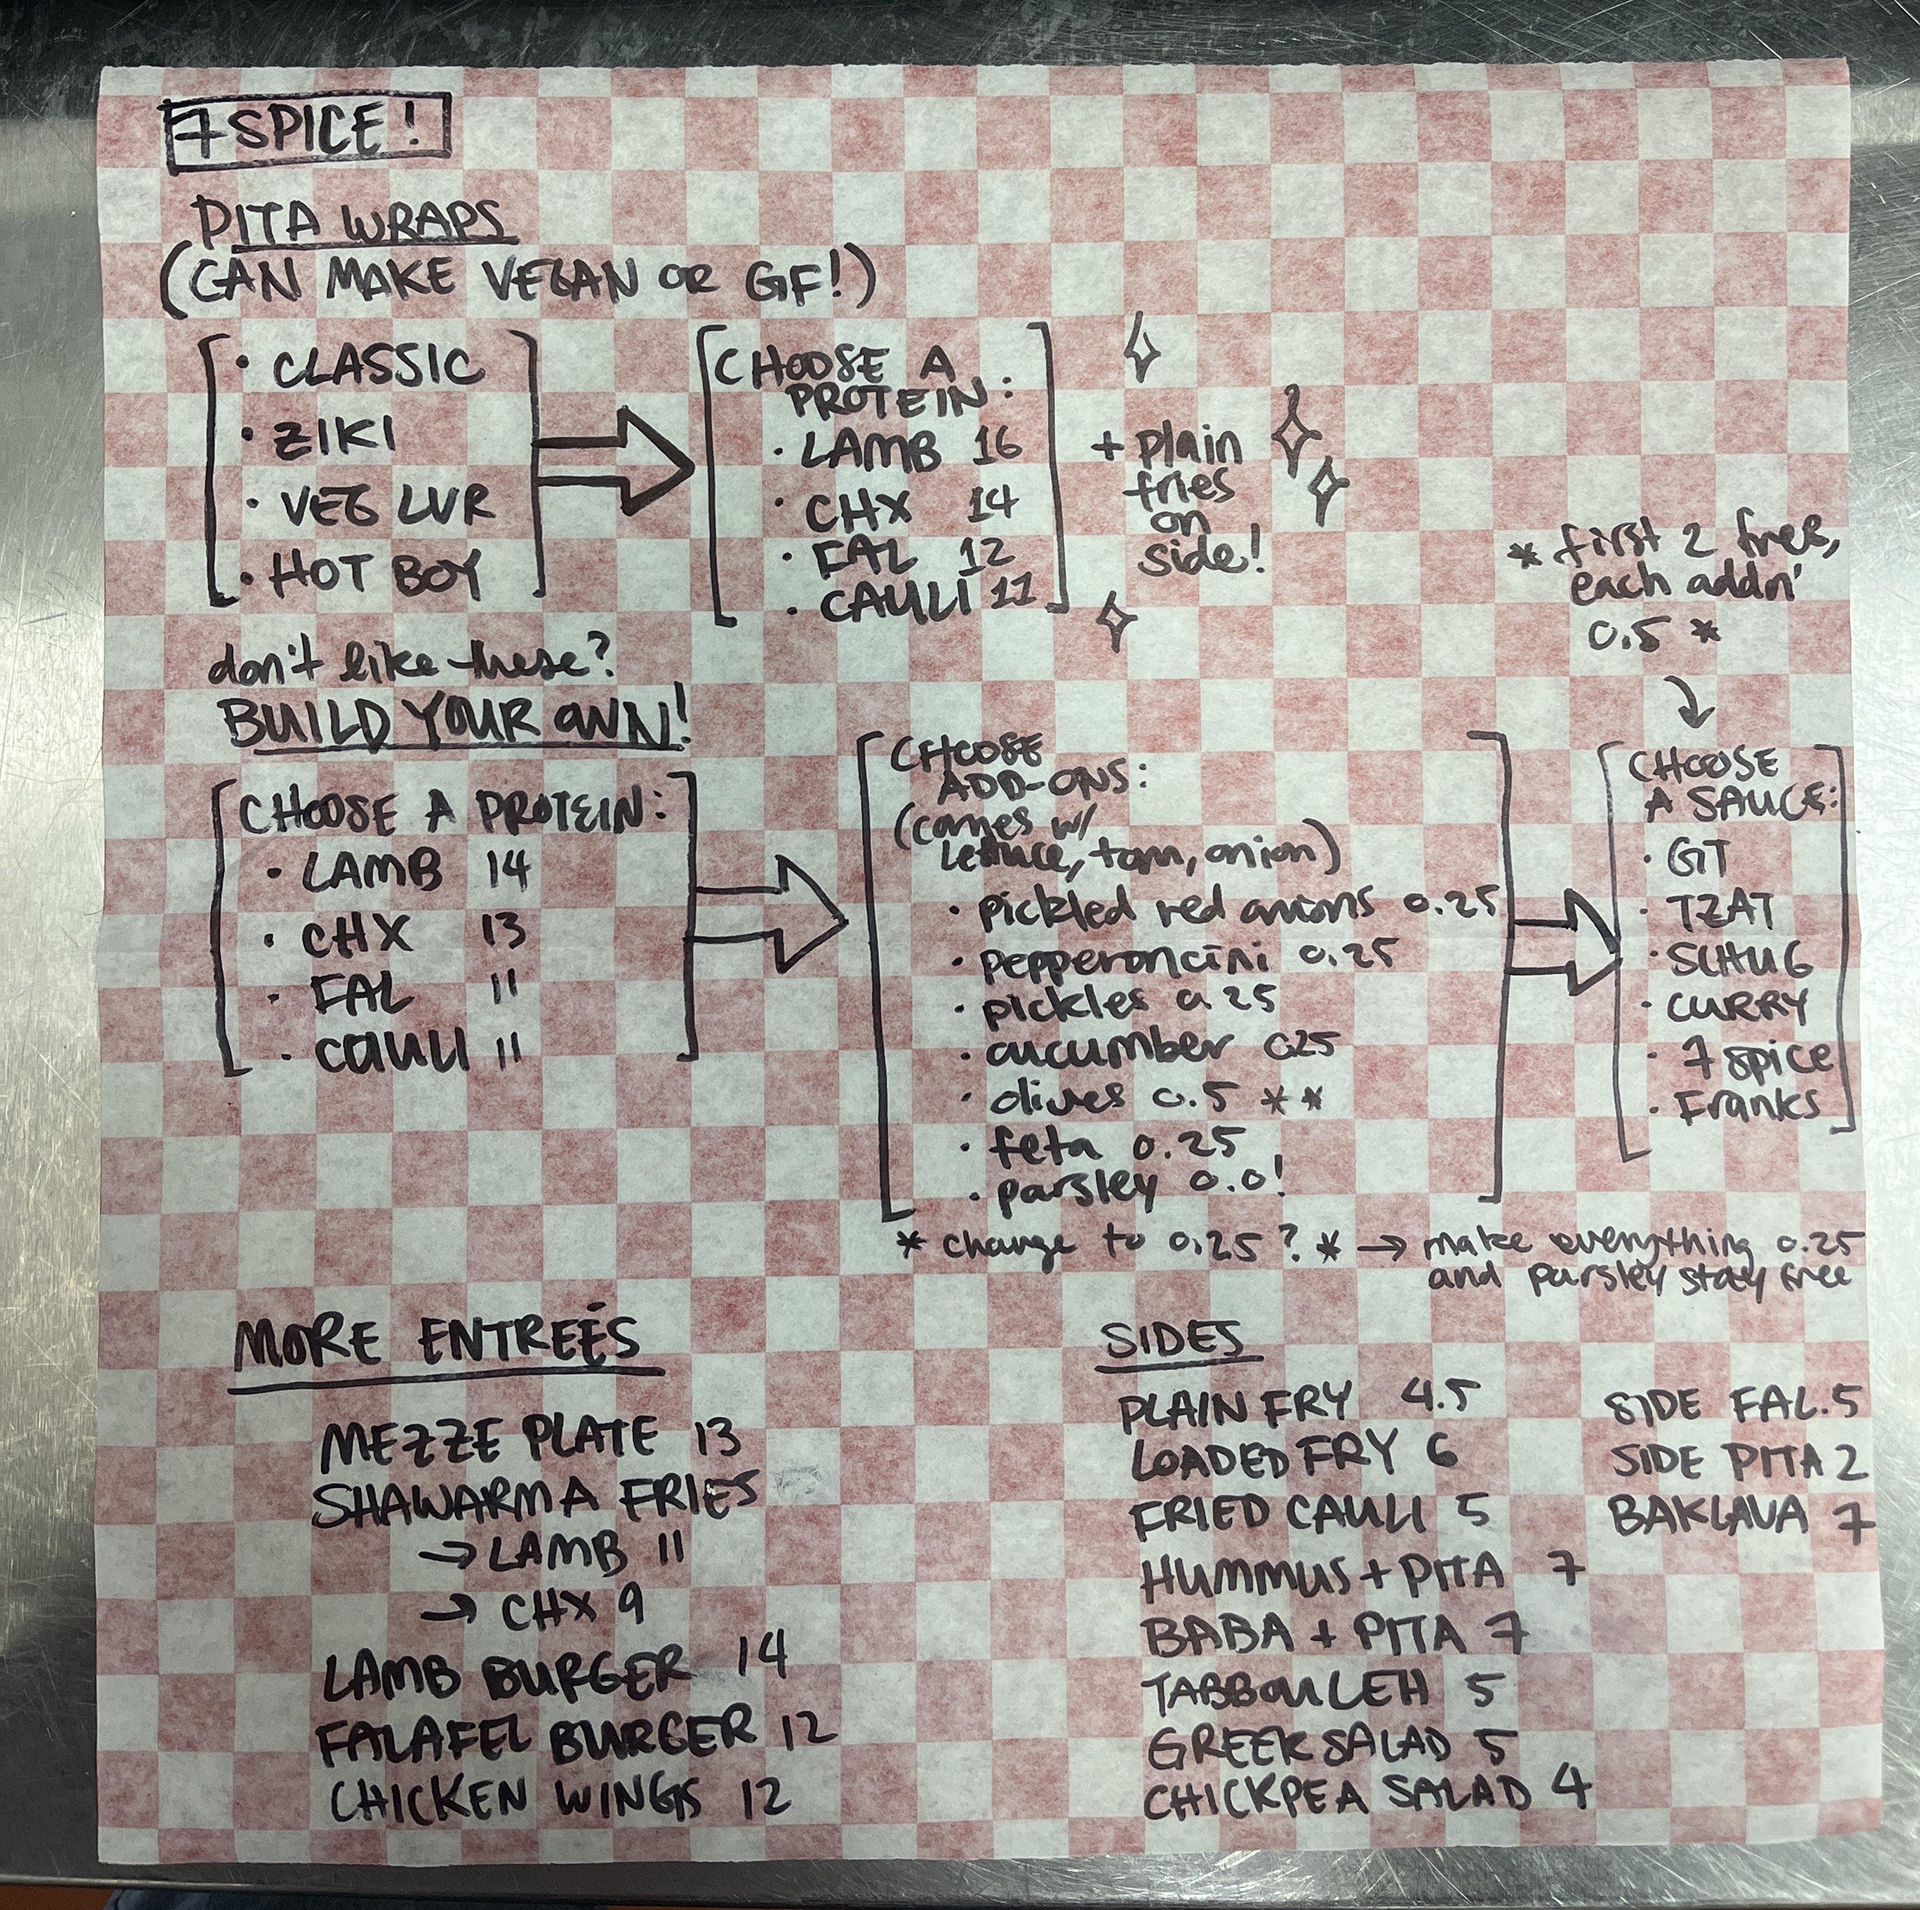 7 SPICE!
PITA WRAPS
(CAN MAKE VEGAN OR GF!)
• CLASSIC
• ZIKI
• VEG LVR
• HOT BOY
CHOOSE A
PROTEIN:
• LAMB 16
• CHX 14
• FAL 12
• CAULI 11
+ plain
fries
on
side!
don't like these?
BUILD YOUR OWN!
CHOOSE A PROTEIN:
• LAMB 14
• CHX 13
• FAL 11
• CAULI 11
CHOOSE
ADD-ONS:
(comes w/
lettuce, tom, onion)
• pickled red onions 0.25
• pepperoncini 0.25
• pickles 0.25
• cucumber 0.25
• olives 0.5 * *
• feta 0.25
• parsley 0.0!
* change to 0.25? * → make everything 0.25
and parsley stay free
* first 2 free,
each addn'
0.5 *
CHOOSE
A SAUCE:
• GT
• TZAT
• SCHUG
• CURRY
• 7 spice
• Franks
MORE ENTREÉS
MEZZE PLATE 13
SHAWARMA FRIES
→ LAMB 11
→ CHX 9
LAMB BURGER 14
FALAFEL BURGER 12
CHICKEN WINGS 12
SIDES
PLAIN FRY 4.5
LOADED FRY 6
FRIED CAULI 5
HUMMUS + PITA 7
BABA + PITA 7
TABBOULEH 5
GREEK SALAD 5
CHICKPEA SALAD 4
SIDE FAL. 5
SIDE PITA 2
BAKLAVA 7